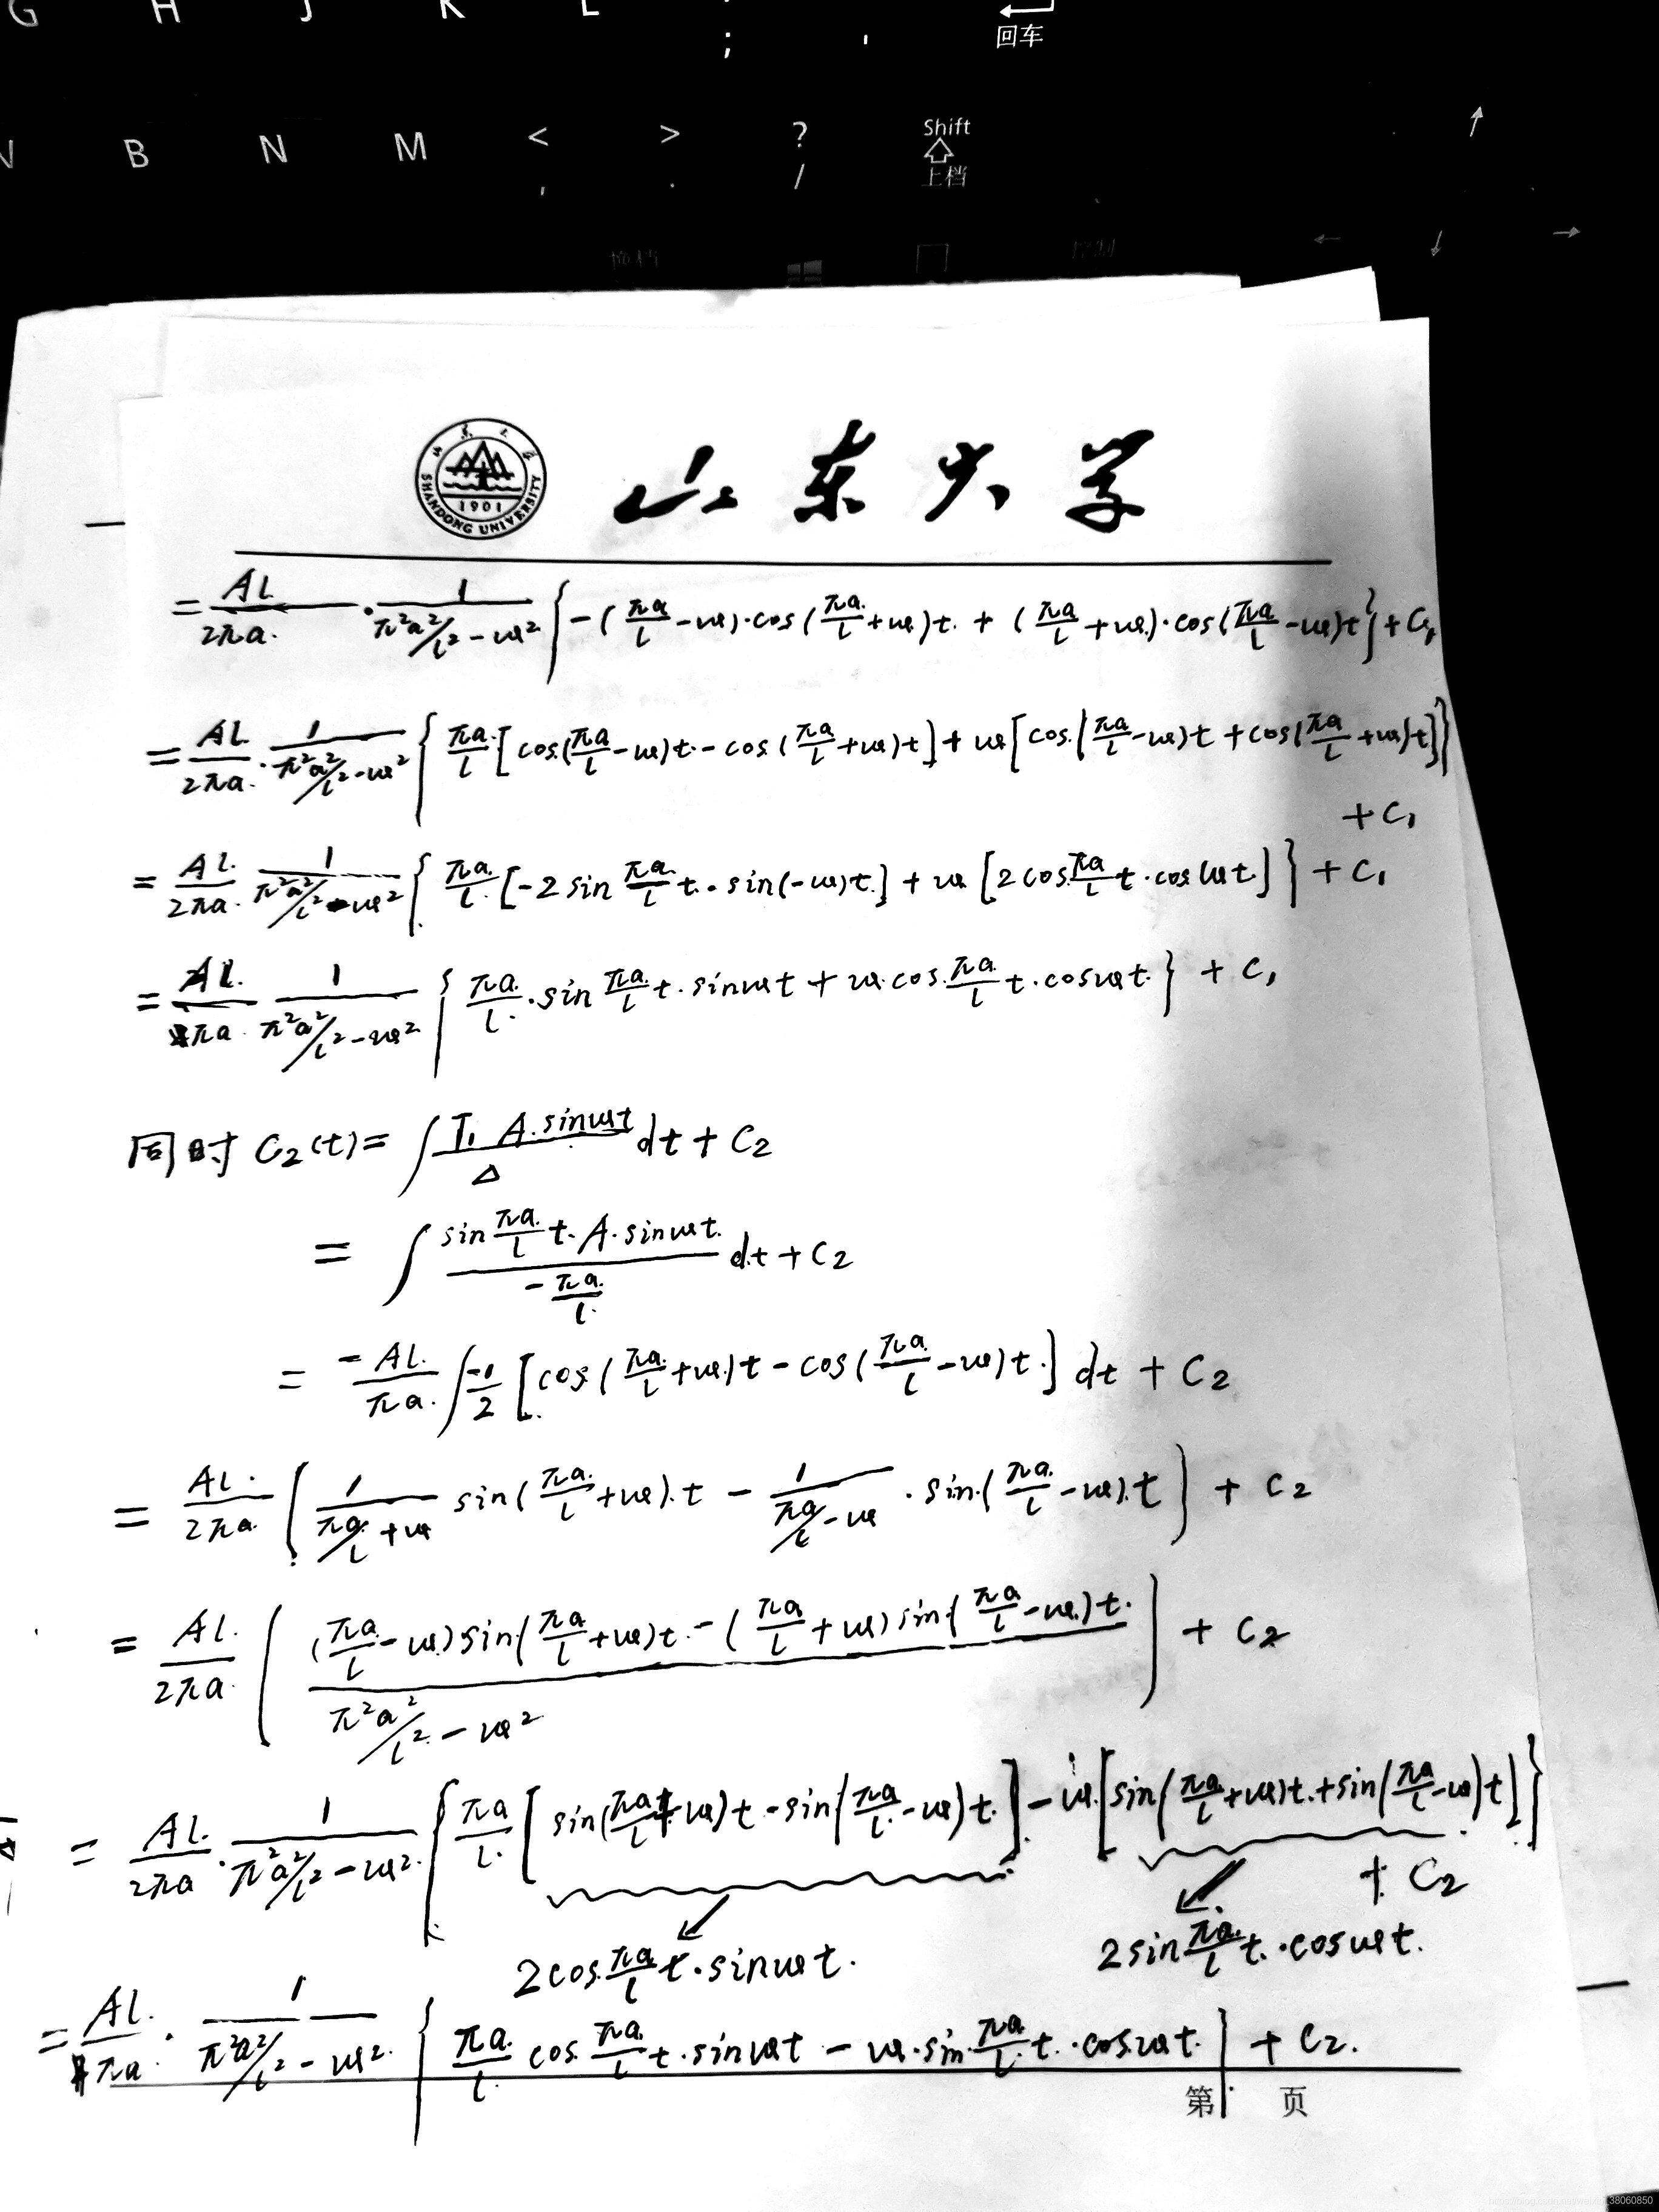 G H J K L ; '
回车
V B N M < , > . ? /
Shift
上档
SHANDONG UNIVERSITY
1901
山东大学
= AL/2πa · 1/(π²a²/l² - ω²) { -(πa/l - ω)·cos(πa/l + ω)t + (πa/l + ω)·cos(πa/l - ω)t } + C₁
= AL/2πa · 1/(π²a²/l² - ω²) { πa/l [cos(πa/l - ω)t - cos(πa/l + ω)t] + ω [cos(πa/l - ω)t + cos(πa/l + ω)t] }
+ C₁
= AL/2πa · 1/(π²a²/l² - ω²) { πa/l [-2 sin πa/l t · sin(-ω)t] + ω [2 cos πa/l t · cos ωt] } + C₁
= AL/πa · 1/(π²a²/l² - ω²) { πa/l · sin πa/l t · sin ωt + ω cos πa/l t · cos ωt } + C₁
同时 C₂(t) = ∫ T₁ A·sin ωt / Δ dt + C₂
= ∫ sin πa/l t · A·sin ωt / (-πa/l) dt + C₂
= -AL/πa ∫ -1/2 [cos(πa/l + ω)t - cos(πa/l - ω)t] dt + C₂
= AL/2πa { 1/(πa/l + ω) sin(πa/l + ω)·t - 1/(πa/l - ω) · sin(πa/l - ω)·t } + C₂
= AL/2πa { ((πa/l - ω) sin(πa/l + ω)t - (πa/l + ω) sin(πa/l - ω)t) / (π²a²/l² - ω²) } + C₂
= AL/2πa · 1/(π²a²/l² - ω²) { πa/l [sin(πa/l + ω)t - sin(πa/l - ω)t] - ω [sin(πa/l + ω)t + sin(πa/l - ω)t] }
+ C₂
2cos πa/l t · sin ωt 2sin πa/l t · cos ωt
= AL/πa · 1/(π²a²/l² - ω²) { πa/l cos πa/l t · sin ωt - ω·sin πa/l t · cos ωt } + C₂
第 页
38060850